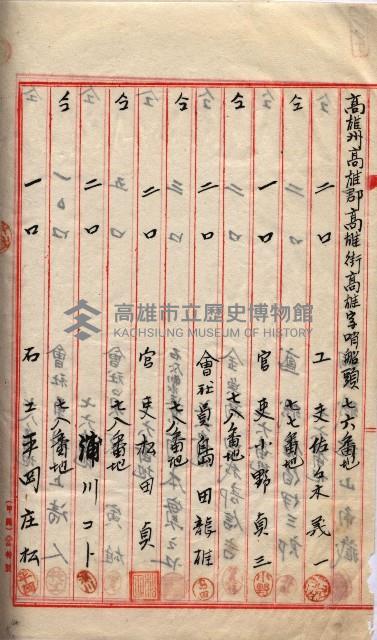 高雄州高雄郡高雄街高雄字哨船頭七六番地
二口 工夫佐々木義一
仝 七七番地
一口 官吏小野貞三
仝 七八番地
二口 會社員島田龍雄
仝 七八番地
二口 官吏松田貞
仝 七八番地
二口 蒲川コト
仝 七八番地
一口 石工平岡庄松
高雄市立歷史博物館
KAOHSIUNG MUSEUM OF HISTORY